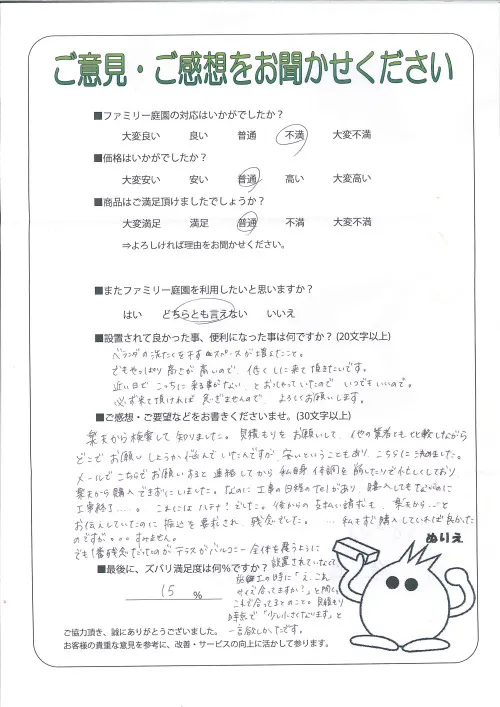 ご意見・ご感想をお聞かせください
■ファミリー庭園の対応はいかがでしたか？
大変良い 良い 普通 不満 大変不満
■価格はいかがでしたか？
大変安い 安い 普通 高い 大変高い
■商品はご満足頂けましたでしょうか？
大変満足 満足 普通 不満 大変不満
⇒よろしければ理由をお聞かせください。
■またファミリー庭園を利用したいと思いますか？
はい どちらとも言えない いいえ
■設置されて良かった事、便利になった事は何ですか？(20文字以上)
ベランダの洗たくを干すスペースが増えたこと。
でもやっぱり高さが高いので、低くしに来て頂きたいです。
近い日でこっちに来る事がない、とおっしゃっていたので いつでもいいので。
必ず来て頂ければ 急ぎませんので、よろしくお願いします。
■ご感想・ご要望などをお書きくださいませ。(30文字以上)
楽天から検索して知りました。見積もりをお願いして、他の業者とも比較しながら
どこでお願いしようか悩んでいたんですが、安いということもあり、こちらに決めました。
メールでこちらでお願いすると連絡してから私自身 体調を崩したりで忙しくしており
楽天から購入できずにいました。なのに工事の日程のTELがあり 購入してもないのに
工事終了……。これには ハテナ？でした。後からの支払い請求も、楽天から…と
お伝えしていたのに 振込を要求され、残念でした。…私もすぐ購入していれば良かった
のですが。。。すみません。
でも1番残念だったのが テラスがバルコニー全体を覆うように
設置されていなくて
施工の時に「え、これ
サイズ合ってますか？」と聞くと
これで合ってるとのこと。見積もり
時点で「少し小さくなります」と
一言欲しかったです。
■最後に、ズバリ満足度は何％ですか？
15 ％
ぬりえ
ご協力頂き、誠にありがとうございました。
お客様の貴重な意見を参考に、改善・サービスの向上に活かして参ります。